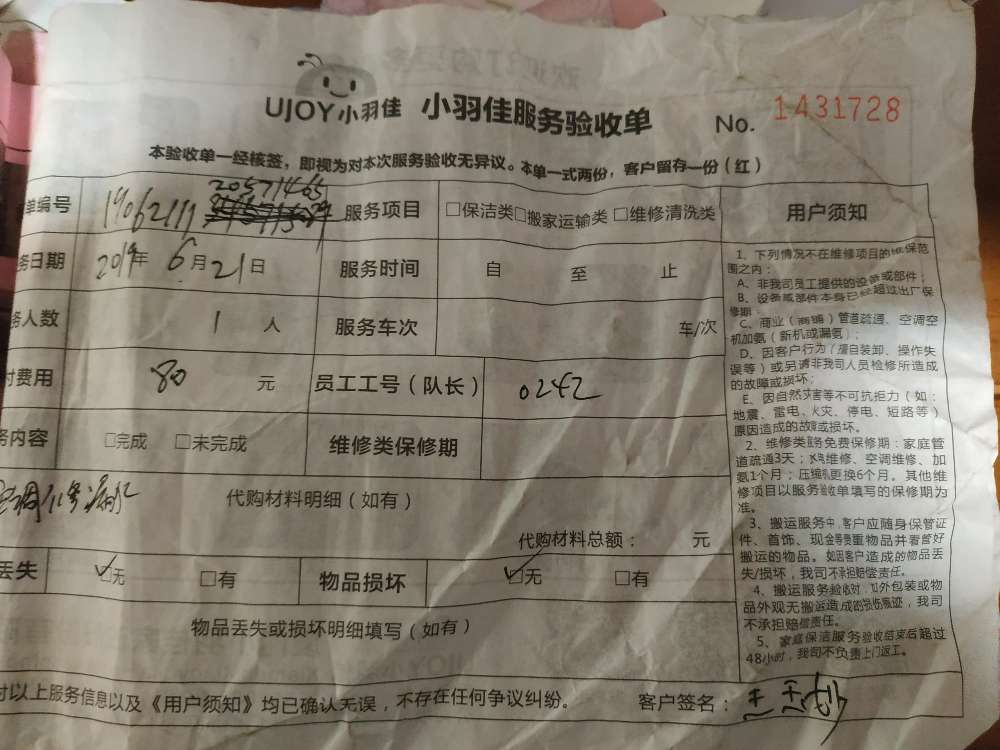 UJOY小羽佳 小羽佳服务验收单 No. 1431728
本验收单一经核签，即视为对本次服务验收无异议。本单一式两份，客户留存一份（红）
单编号 19062111 20571465 服务项目 □保洁类□搬家运输类 □维修清洗类 用户须知
务日期 2019年 6月21日 服务时间 自 至 止
务人数 1 人 服务车次 车/次
付费用 80 元 员工工号（队长） 0242
务内容 □完成 □未完成 维修类保修期
代购材料明细（如有）
代购材料总额： 元
丢失 ☑无 □有 物品损坏 ☑无 □有
物品丢失或损坏明细填写（如有）
对以上服务信息以及《用户须知》均已确认无误，不存在任何争议纠纷。 客户签名：
1、下列情况不在维修项目的维保范
围之内：
A、非我司员工提供的设备或部件；
B、设备或部件本身已经超过出厂保
修期；
C、商业（商铺）管道疏通、空调空
机加氨（新机或漏氨）；
D、因客户行为（擅自装卸、操作失
误等）或另请非我司人员检修所造成
的故障或损坏；
E、因自然灾害等不可抗拒力（如：
地震、雷电、火灾、停电、短路等）
原因造成的故障或损坏。
2、维修类服务免费保修期：家庭管
道疏通3天；水电维修、空调维修、加
氨1个月；压缩机更换6个月。其他维
修项目以服务验收单填写的保修期为
准。
3、搬运服务中，客户应随身保管证
件、首饰、现金等贵重物品并看管好
搬运的物品。如因客户造成的物品丢
失/损坏，我司不承担赔偿责任。
4、搬运服务验收时，如外包装或物
品外观无搬运造成的损伤痕迹，我司
不承担赔偿责任。
5、家庭保洁服务验收结束后超过
48小时，我司不负责上门返工。